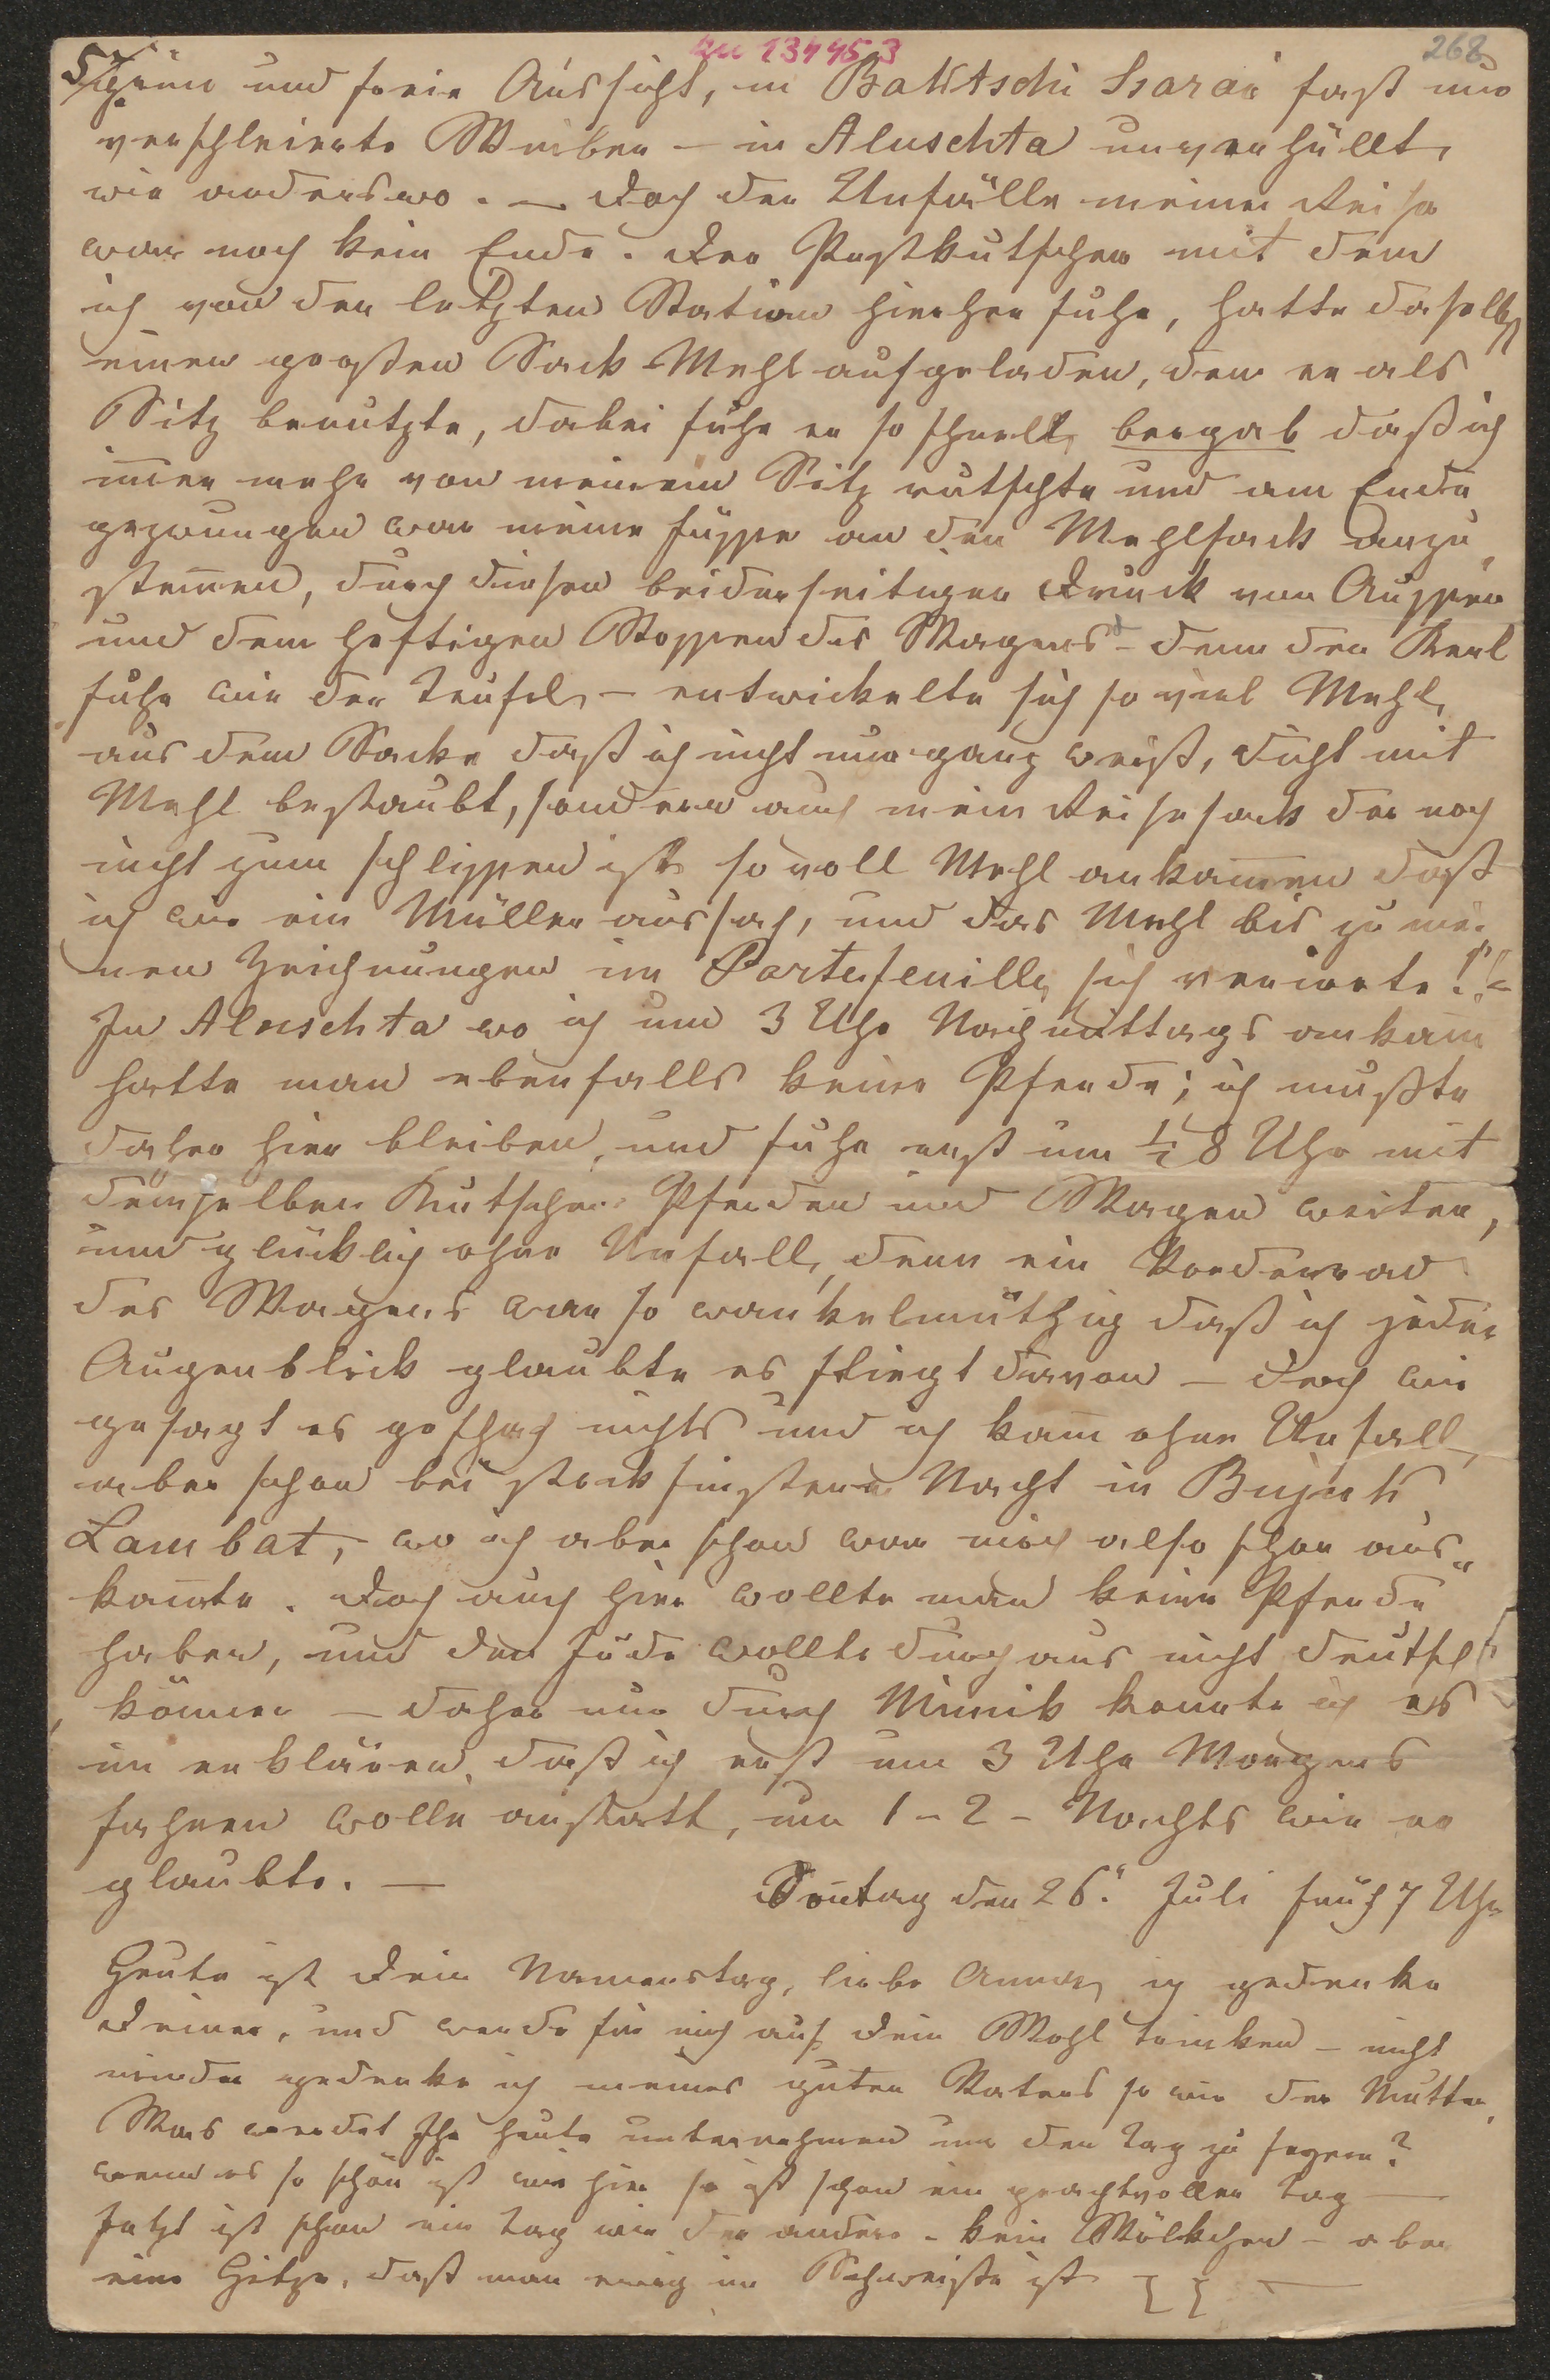 zu 134453
268
5/ grün und freie Aussicht, in Baktschi Ssarai fast nur
verschleierte Weiber – in Aluschta unverhüllt,
wie anderswo. – Doch der Unfälle meiner Reise
war noch kein Ende. Der Postkutscher mit dem
ich von der letzten Station hierher fuhr, hatte daselbst
einen großen Sack Mehl aufgeladen, den er als
Sitz benutzte, dabei fuhr er so schnell bergab daß ich
im̅er mehr von meinem Sitz rutschte und am Ende
gezwungen war meine Füsse an den Mehlsack anzu
stem̅en, durch diesen beiderseitigen Druck von Aussen
und dem heftigen Stossen des Wagens – denn der Kerl
fuhr wie der Teufel, – entwickelte sich so viel Mehl,
aus dem Sacke daß ich nicht nur ganz weiß, dicht mit
Mehl bestaubt, sondern auch mein Reisesack der noch
nicht zum schlissen ist so voll Mehl ankam̅en daß
ich wie ein Müller aussah, und das Mehl bis zu mei
nen Zeichnungen im Portefeuille sich verirrte!! –
In Aluschta wo ich um 3 Uhr Nachmittags ankam
hatte man ebenfalls keine Pferde; ich mußte
daher hier bleiben, und fuhr erst um ½ 8 Uhr mit
demselben Kutscher Pferden und Wagen weiter,
und glücklich ohne Unfall, denn ein Vorderrad
des Wagens war so wankelmüthig daß ich jeden
Augenblick glaubte es fliegt davon – doch wie
gesagt es geschah nichts und ich kam ohne Unfall,
aber schon bei stockfinsterer Nacht in Bujuk
Lambat, – wo ich aber schon war mich also schon aus„
kan̅te. Doch auch hier wollte man keine Pferde
haben, und der Jude wollte durchaus nicht deutsch
können – daher nur durch Mimik konnte ich es
im erklären, daß ich erst um 3 Uhr Morgens
fahren wolle anstatt, um 1 – 2 – Nachts wie er
glaubte. –
Son̅tag den 26. Juli früh 7 Uhr
Heute ist Dein Namenstag, liebe Anna, ich gedenke
Deiner, und werde für mich auf Dein Wohl trinken – nicht
minder gedenke ich meines guten Vaters so wie der Mutter,
Was werdet Ihr heute unternehmen um den Tag zu feyern?
wenn es so schön ist wie hier so ist schon ein prachtvoller Tag —
Jetzt ist schon ein Tag wie der andere – kein Wölkchen – aber
eine Hitze, daß man ewig im Schweiße ist —